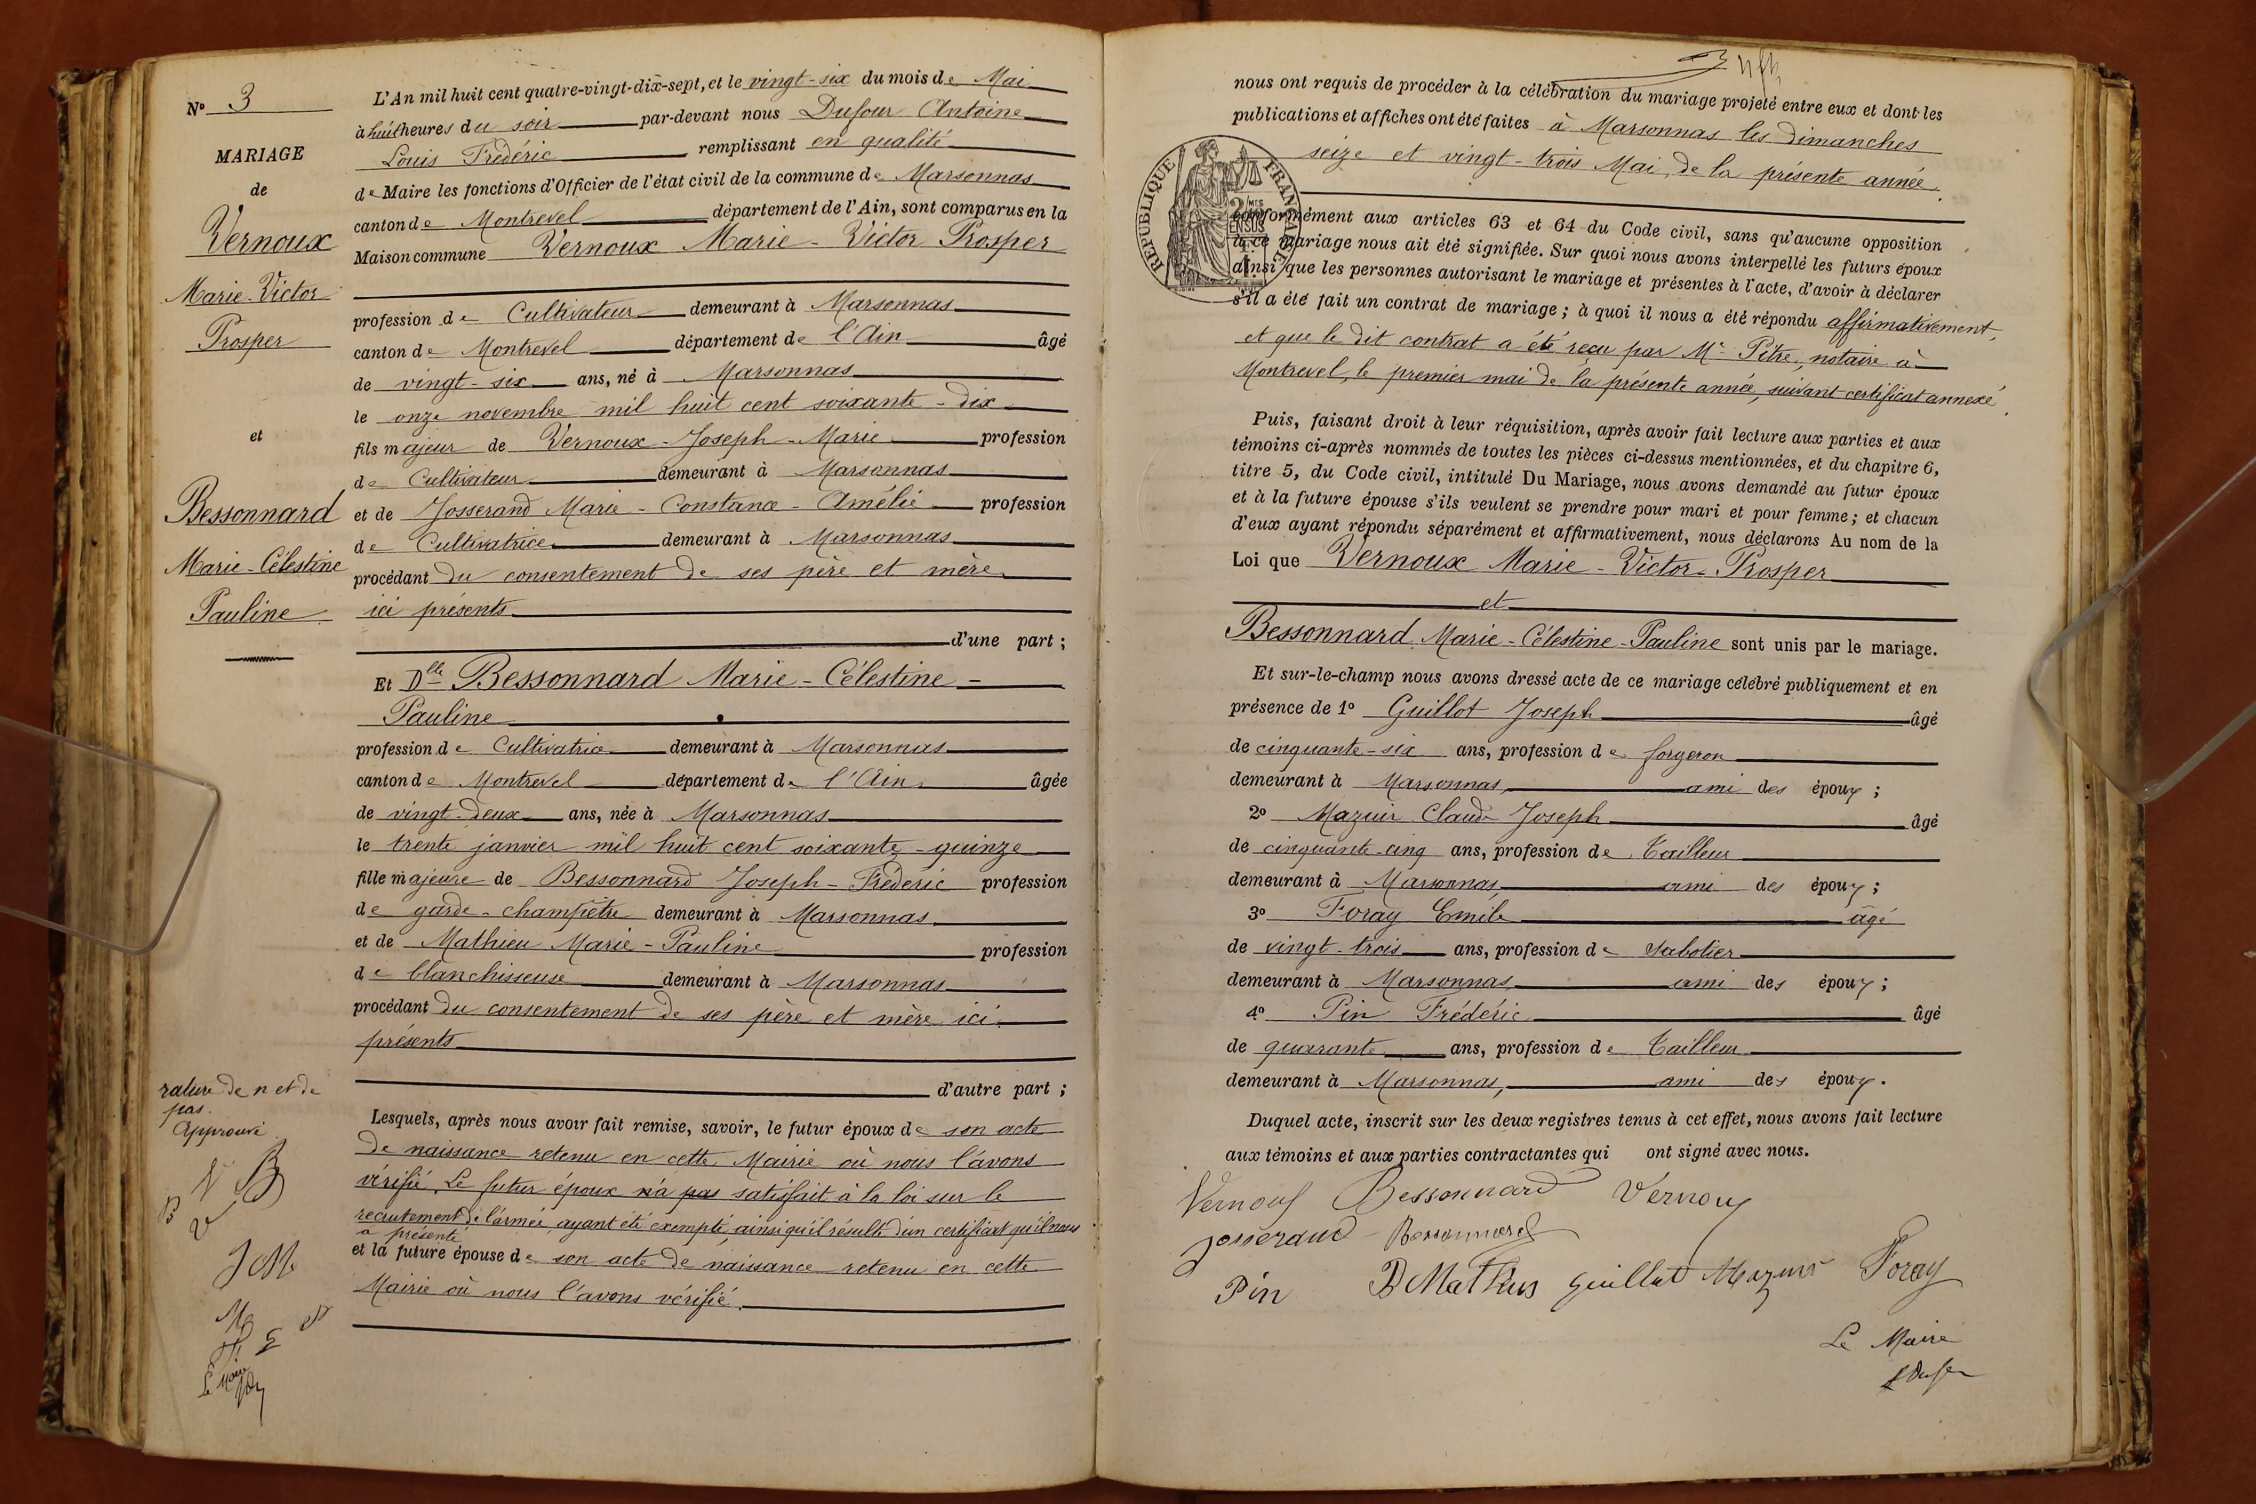 N° 3
MARIAGE
de
Vernoux
Marie-Victor
Prosper
et
Bessonnard
Marie-Célestine
Pauline
L'An mil huit cent quatre-vingt-dix-sept, et le vingt-six du mois de Mai
à huit heures du soir par-devant nous Dufour Antoine
Louis Frédéric remplissant en qualité
de Maire les fonctions d'Officier de l'état civil de la commune de Marsonnas
canton de Montrevel département de l'Ain, sont comparus en la
Maison commune Vernoux Marie-Victor Prosper
profession de Cultivateur demeurant à Marsonnas
canton de Montrevel département de l'Ain âgé
de vingt-six ans, né à Marsonnas
le onze novembre mil huit cent soixante-dix
fils majeur de Vernoux-Joseph-Marie profession
de Cultivateur demeurant à Marsonnas
et de Josserand Marie-Constance-Amélie profession
de Cultivatrice demeurant à Marsonnas
procédant du consentement de ses père et mère
ici présents
d'une part ;
Et Dlle Bessonnard Marie-Célestine-
Pauline
profession de Cultivatrice demeurant à Marsonnas
canton de Montrevel département de l'Ain âgée
de vingt-deux ans, née à Marsonnas
le trente janvier mil huit cent soixante-quinze
fille majeure de Bessonnard Joseph-Frédéric profession
de garde-champêtre demeurant à Marsonnas
et de Mathieu Marie-Pauline profession
de blanchisseuse demeurant à Marsonnas
procédant du consentement de ses père et mère ici
présents
d'autre part ;
Lesquels, après nous avoir fait remise, savoir, le futur époux de son acte
de naissance retenu en cette Mairie où nous l'avons
vérifié. Le futur époux n'a pas satisfait à la loi sur le
recrutement de l'armée, ayant été exempté, ainsi qu'il résulte d'un certificat qu'il nous
a présenté
et la future épouse de son acte de naissance retenu en cette
Mairie où nous l'avons vérifié.
rature de n et de
pas.
Approuvé
V B
B V
J M
Le Maire
nous ont requis de procéder à la célébration du mariage projeté entre eux et dont les
publications et affiches ont été faites à Marsonnas les dimanches
seize et vingt-trois Mai, de la présente année.
RÉPUBLIQUE FRANÇAISE
conformément aux articles 63 et 64 du Code civil, sans qu'aucune opposition
à ce mariage nous ait été signifiée. Sur quoi nous avons interpellé les futurs époux
ainsi que les personnes autorisant le mariage et présentes à l'acte, d'avoir à déclarer
s'il a été fait un contrat de mariage ; à quoi il nous a été répondu affirmativement,
et que le dit contrat a été reçu par Me Pitre, notaire à
Montrevel, le premier mai de la présente année, suivant certificat annexé.
Puis, faisant droit à leur réquisition, après avoir fait lecture aux parties et aux
témoins ci-après nommés de toutes les pièces ci-dessus mentionnées, et du chapitre 6,
titre 5, du Code civil, intitulé Du Mariage, nous avons demandé au futur époux
et à la future épouse s'ils veulent se prendre pour mari et pour femme ; et chacun
d'eux ayant répondu séparément et affirmativement, nous déclarons Au nom de la
Loi que Vernoux Marie-Victor-Prosper
et
Bessonnard Marie-Célestine-Pauline sont unis par le mariage.
Et sur-le-champ nous avons dressé acte de ce mariage célébré publiquement et en
présence de 1° Guillot Joseph âgé
de cinquante-six ans, profession de forgeron
demeurant à Marsonnas, ami des époux ;
2° Mazuir Claude Joseph âgé
de cinquante-cinq ans, profession de tailleur
demeurant à Marsonnas, ami des époux ;
3° Foray Emile âgé
de vingt-trois ans, profession de sabotier
demeurant à Marsonnas ami des époux ;
4° Pin Frédéric âgé
de quarante ans, profession de tailleur
demeurant à Marsonnas, ami des époux.
Duquel acte, inscrit sur les deux registres tenus à cet effet, nous avons fait lecture
aux témoins et aux parties contractantes qui ont signé avec nous.
Vernoux Bessonnard Vernoux
Josserand Bessonnard
Pin Guillot Mazuir Foray
Le Maire